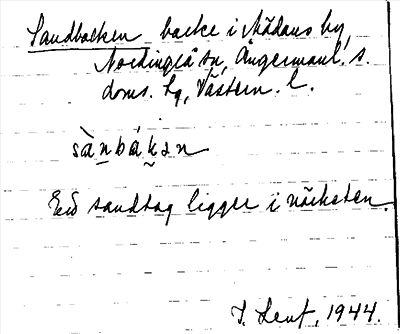 Sandbacken backe i Mädans by,
Nordingrå sn, Ångermanl. s.
doms. hg, Västern. l.
sànbákən
Ett sandtag ligger i närheten.
1944.